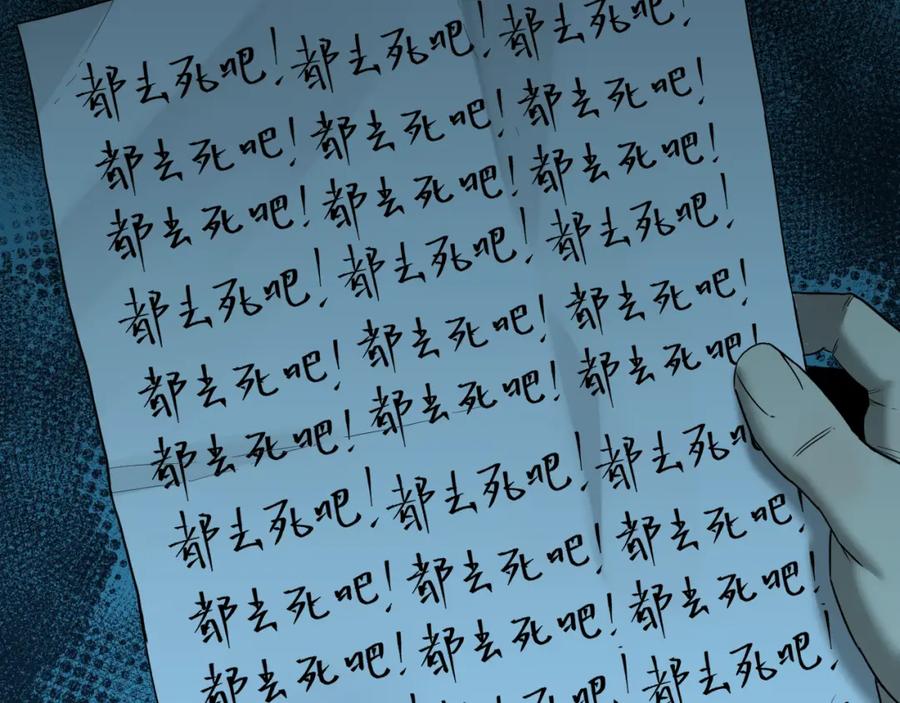 都去死吧!都去死吧!都去死吧!
都去死吧!都去死吧!都去死吧!
都去死吧!都去死吧!都去死吧!
都去死吧!都去死吧!都去死吧!
都去死吧!都去死吧!都去死吧!
都去死吧!都去死吧!都去死吧!
都去死吧!都去死吧!都去死
都去死吧!都去死吧!都去死吧!
都去死吧!都去死吧!都去死吧!
都去死吧!都去死吧!